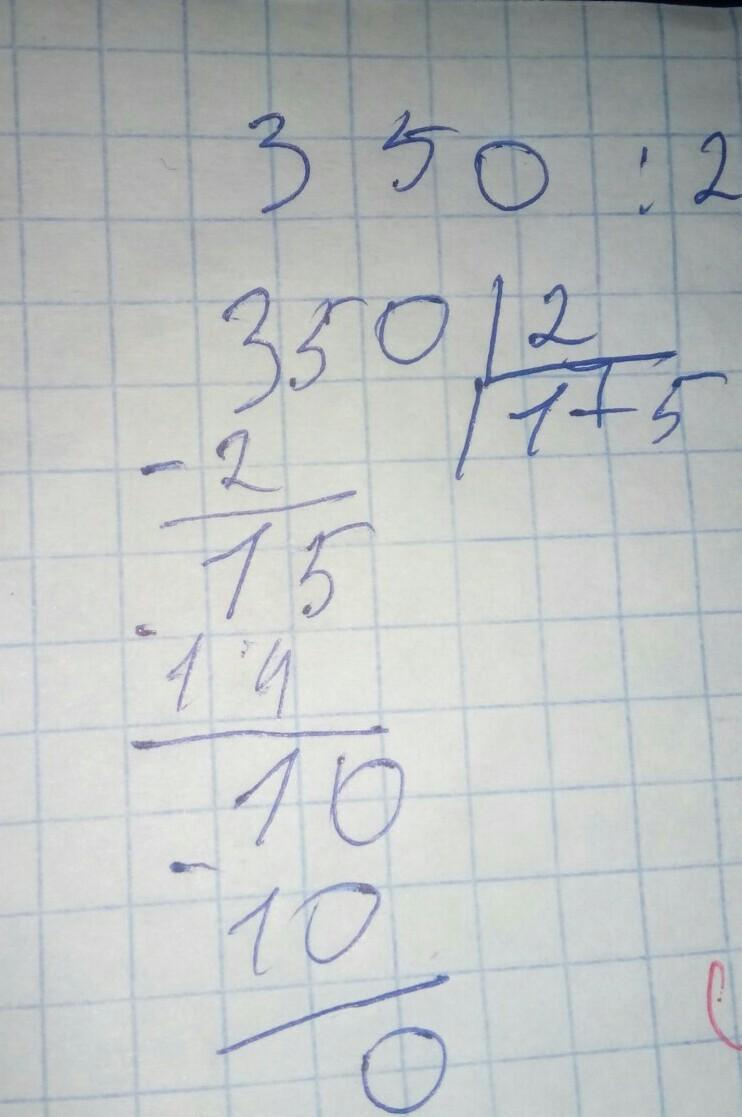 350 : 2
350 | 2
175
- 2
15
- 14
10
- 10
0